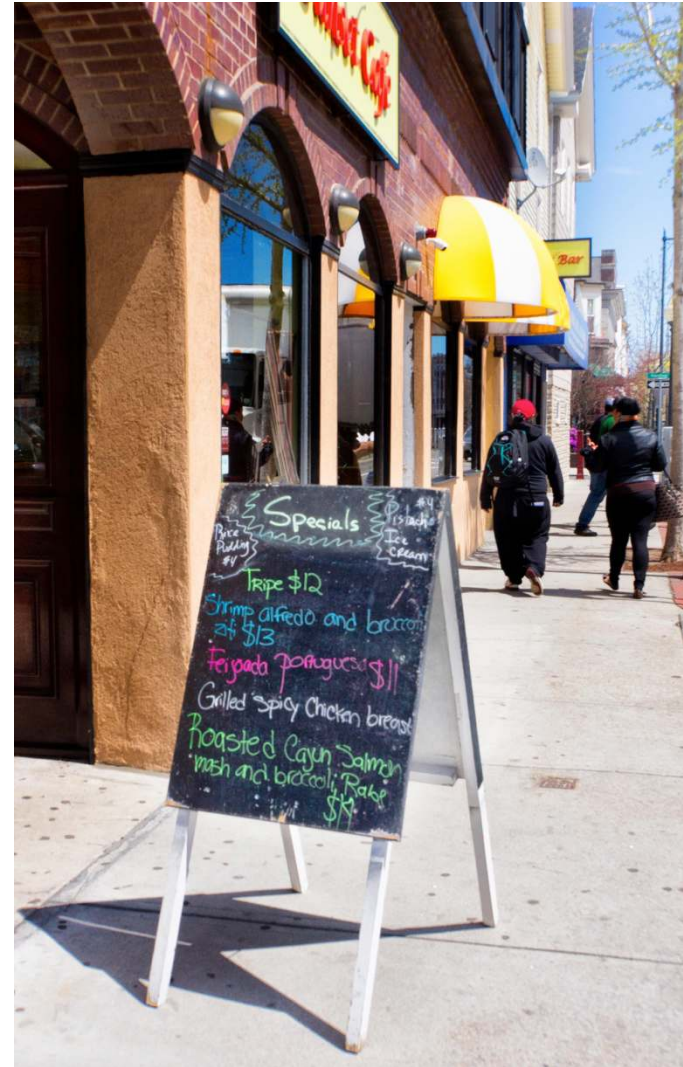 Caffe
Bar
Specials
Rice
Pudding
$4
$4
Pistach
Ice
Cream
Tripe $12
Shrimp alfredo and broccoli
ziti $13
Feijoada portuguesa $11
Grilled Spicy Chicken breast
Roasted Cajun Salmon
mash and broccoli Rabe